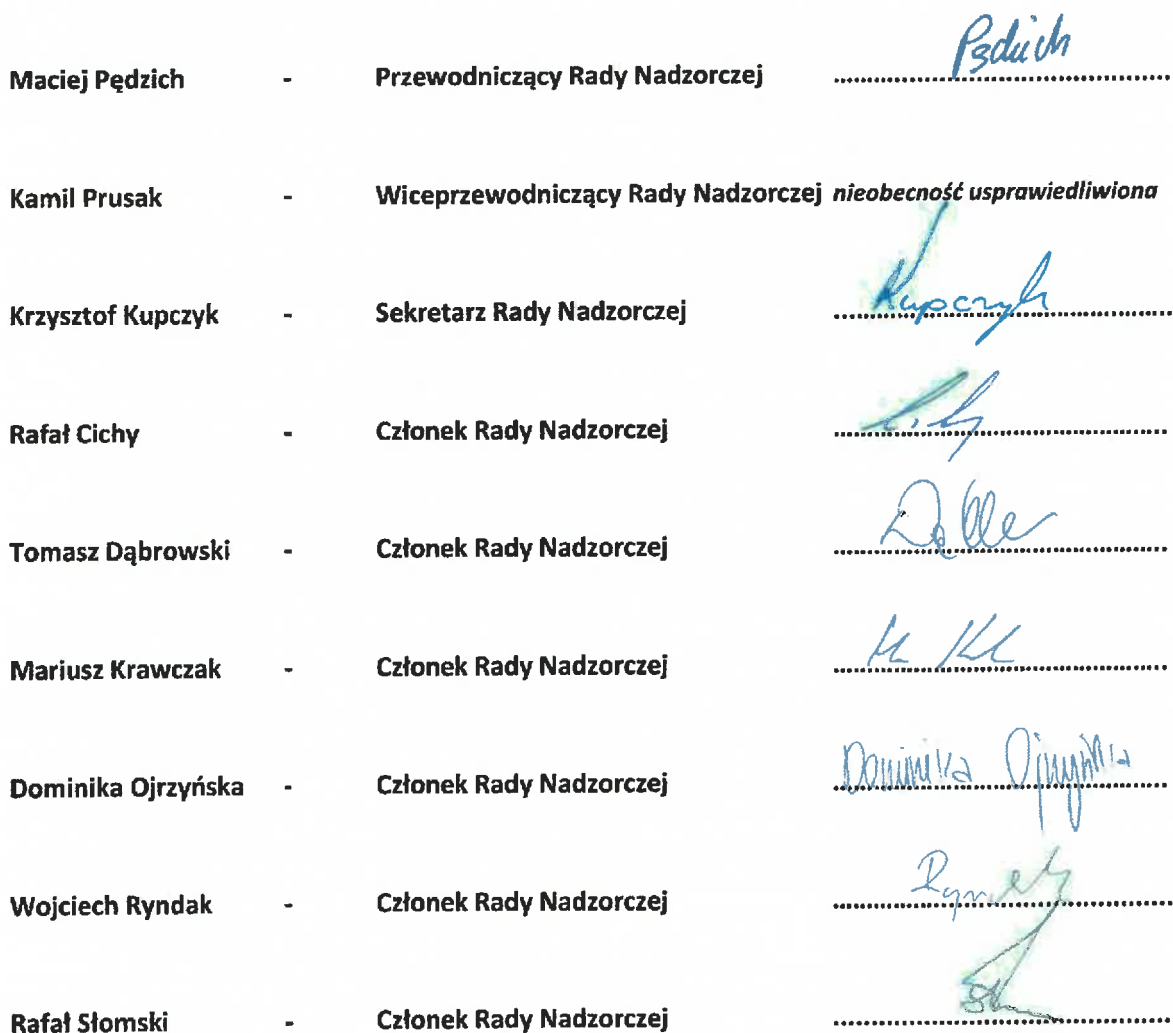 Maciej Pędzich - Przewodniczący Rady Nadzorczej Pędzich
Kamil Prusak - Wiceprzewodniczący Rady Nadzorczej nieobecność usprawiedliwiona
Krzysztof Kupczyk - Sekretarz Rady Nadzorczej Kupczyk
Rafał Cichy - Członek Rady Nadzorczej
Tomasz Dąbrowski - Członek Rady Nadzorczej
Mariusz Krawczak - Członek Rady Nadzorczej
Dominika Ojrzyńska - Członek Rady Nadzorczej Dominika Ojrzyńska
Wojciech Ryndak - Członek Rady Nadzorczej
Rafał Słomski - Członek Rady Nadzorczej